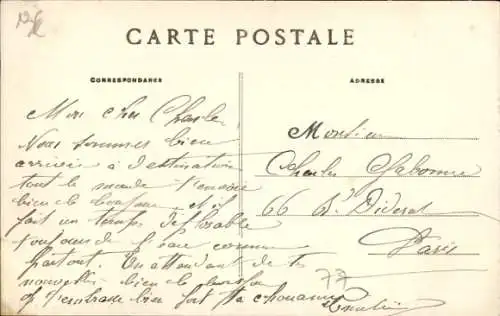 CARTE POSTALE
CORRESPONDANCE
ADRESSE
Mon cher Charles
Nous sommes bien
arrivés à destination
tout le monde t'envoie
bien le bonjour. il
fait un temps déplorable
toujours de l'eau comme
partout. En attendant de tes
nouvelles bien le
t'embrasse bien fort ta
Monsieur
Charles
66 Bd Diderot
Paris
77